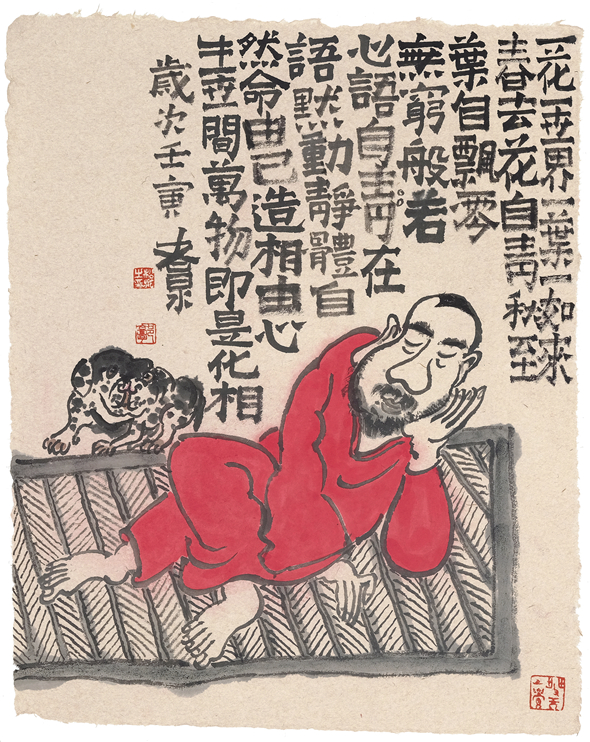 一花一世界一葉一如來
春去花自青秋至
葉自飄零
無窮般若
心語自青在
語默動靜體自
然命由己造相由心
生世間萬物即是化相
歲次壬寅